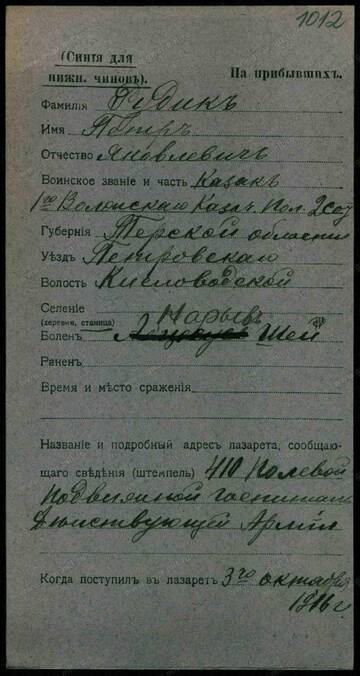 1012
(Синія для
нижн. чиновъ).
На прибывшихъ.
Фамилія Родикъ
Имя Петръ
Отчество Яковлевичъ
Воинское званіе и часть Казакъ
1го Волжскаго Казач. Пол. 2 сот
Губернія Терской области
Уѣздъ Петровскаго
Волость Кисловодской
Селеніе
(деревня, станица)
Нарывъ
Боленъ Шеи
Раненъ
Время и мѣсто сраженія
Названіе и подробный адресъ лазарета, сообщаю-
щаго свѣдѣнія (штемпель) 410 Полевой
Подвижной госпиталь
Дѣйствующей Арміи
Когда поступилъ въ лазаретъ 3го октября
1916 г